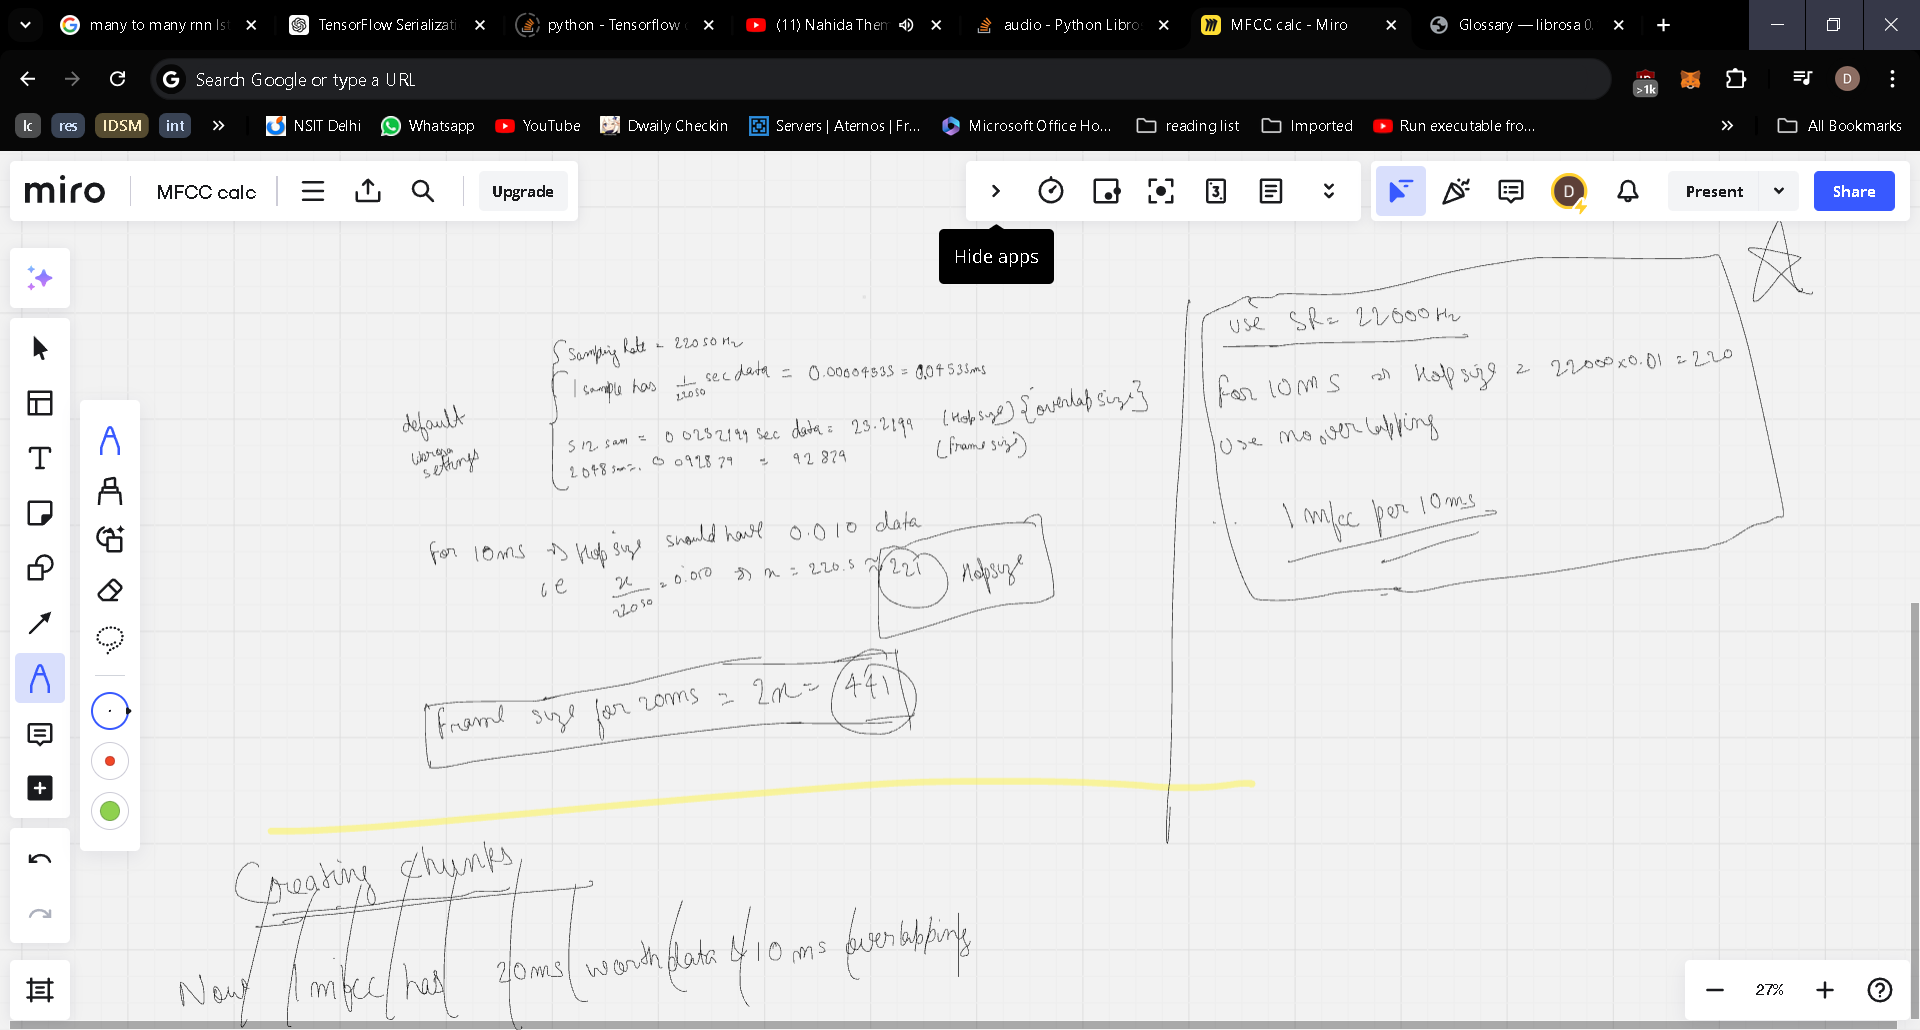 many to many rnn lst
TensorFlow Serializati
python - Tensorflow
(11) Nahida Them
audio - Python Libro
MFCC calc - Miro
Glossary — librosa 0.
Search Google or type a URL
>1k
D
lc
res
IDSM
int
NSIT Delhi
Whatsapp
YouTube
Dwaily Checkin
Servers | Aternos | Fr...
Microsoft Office Ho...
reading list
Imported
Run executable fro...
All Bookmarks
miro
MFCC calc
Upgrade
3
D
Present
Share
Hide apps
Sampling Rate = 22050 Hz
1 sample has 1/22050 sec data = 0.00004535 = 0.04535ms
default
settings
512 sam = 0.0232199 sec data = 23.2199 (Hop size) {overlap size}
2048 sam = 0.092879 = 92 879 (frame size)
For 10ms => Hop size should have 0.010 data
ie x/22050 = 0.010 => x = 220.5 ≈ 221 Hopsize
Frame size for 20ms = 2x = 441
use SR = 22000 Hz
for 10ms => Hop size = 22000x0.01 = 220
use no overlapping
∴ 1 mfcc per 10ms
Creating chunks
Now 1 mfcc has 20ms worth data & 10 ms overlapping
27%